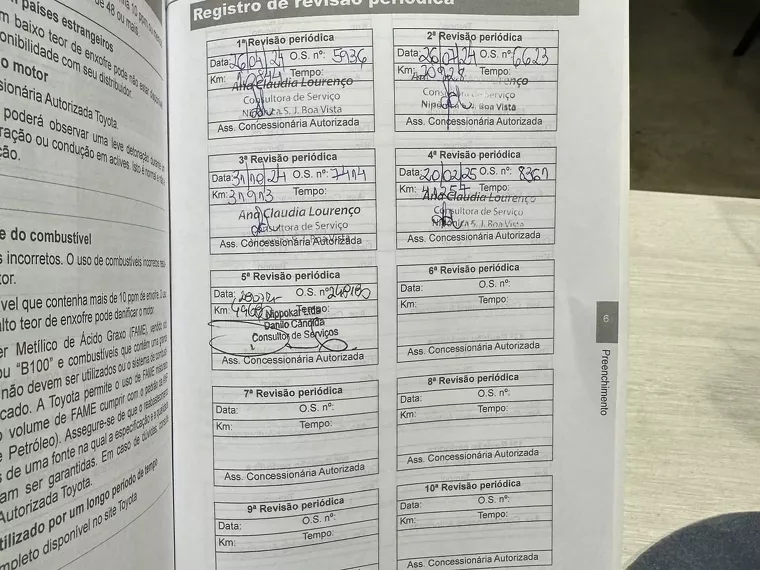 de 48 ou mais
países estrangeiros
baixo teor de enxofre pode não estar
onibilidade com seu distribuidor.
o motor
sionária Autorizada Toyota.
poderá observar uma leve detonação durante
ração ou condução em aclives. Isto é normal e não
ção.
e do combustível
s incorretos. O uso de combustíveis incorretos
tor.
vel que contenha mais de 10 ppm de enxofre. O uso
alto teor de enxofre pode danificar o motor.
er Metílico de Ácido Graxo (FAME), vendido
ou "B100" e combustíveis que contêm uma grande
não devem ser utilizados ou o sistema de
cado. A Toyota permite o uso de FAME
o volume de FAME cumprir com o padrão da
e Petróleo). Assegure-se de que o
s de uma fonte na qual a especificação e a
am ser garantidas. Em caso de dúvidas,
Autorizada Toyota.
tilizado por um longo período de tempo
mpleto disponível no site Toyota
Registro de revisão periódica
1ª Revisão periódica
Data: 26/04/24 O.S. nº: 5936
Km: 10844 Tempo:
Ana Claudia Lourenço
Consultora de Serviço
S. J. Boa Vista
Ass. Concessionária Autorizada
2ª Revisão periódica
Data: 26/07/24 O.S. nº: 6623
Km: 20928 Tempo:
Serviço
S. J. Boa Vista
Ass. Concessionária Autorizada
3ª Revisão periódica
Data: 31/10/24 O.S. nº: 7414
Km: 31913 Tempo:
Ana Claudia Lourenço
Consultora de Serviço
S. J. Boa Vista
Ass. Concessionária Autorizada
4ª Revisão periódica
Data: 20/02/25 O.S. nº: 8361
Km: 41254 Tempo:
Ana Claudia Lourenço
Consultora de Serviço
S. J. Boa Vista
Ass. Concessionária Autorizada
5ª Revisão periódica
Data: O.S. nº:
Km: Tempo:
Nippokar Ltda
Danilo Cândida
Consultor de Serviços
Ass. Concessionária Autorizada
6ª Revisão periódica
Data: O.S. nº:
Km: Tempo:
Ass. Concessionária Autorizada
7ª Revisão periódica
Data: O.S. nº:
Km: Tempo:
Ass. Concessionária Autorizada
8ª Revisão periódica
Data: O.S. nº:
Km: Tempo:
Ass. Concessionária Autorizada
9ª Revisão periódica
Data: O.S. nº:
Km: Tempo:
10ª Revisão periódica
Data: O.S. nº:
Km: Tempo:
Ass. Concessionária Autorizada
6
Preenchimento